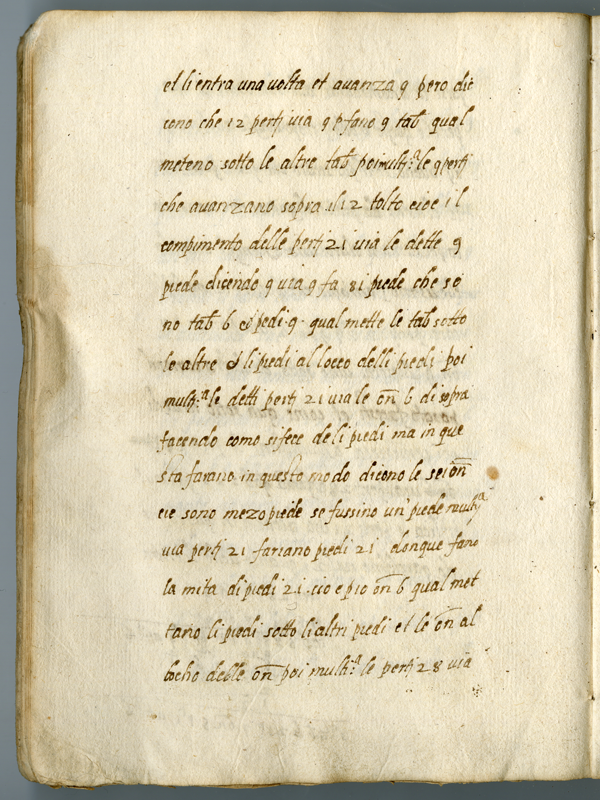 el li entra una volta et auanza 9 pero dic
cono che 12 pertj uia 9 p fano 9 tab̄ qual
meteno sotto le altre tab̄ poi multj.ᵃ le 9 pertj
che auanzano sopra il 12 tolto cioe il
compimento delle pertj 21 uia le dette 9
piede dicendo 9 uia 9 fa 81 piede che so
no tab̄ 6 & pedi 9 · qual mette le tab̄ sotto
le altre & li piedi al locco delli piedi poi
multj.ᵃ le detti pertj 21 uia le on̄ 6 di sopra
facendo como si fece de li piedi ma in que
sta farano in questo modo dicono le sei on̄
cie sono mezo piede se fussino un' piede multjᵃ
uia pertj 21 fariano piedi 21 donque fano
la mita di piedi 21 · cio e p 10 on̄ 6 qual met
tano li piedi sotto li altri piedi et le on̄ al
locho delle on̄ poi multj.ᵃ le pertj 28 uia